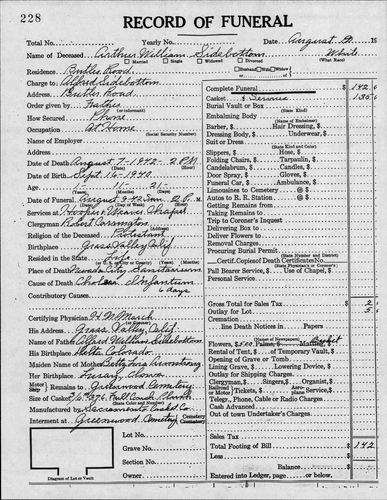 228
RECORD OF FUNERAL
Total No. Yearly No. Date August 8 19
Name of Deceased Arthur William Sidebottom White
Married Single Widowed Divorced (What Race)
Residence Butler Road
Charge to Alfred Sidebottom
Address Butler Road
Order given by Father
How Secured Phone
Occupation At Home
(Social Security Number)
Name of Employer
Address
Date of Death August 7-1942-2 P.M.
Date of Birth Sept. 16-1940
Age 1- 11- 21-
(Years) (Months) (Days)
Date of Funeral 2 P.M.
Services at Hooper & Weaver Chapel
Clergyman Robert Carrington
Religion of the Deceased Protestant
Birthplace Grass Valley Calif.
Resided in the State Life
Place of Death Nevada City Sanitarium
Cause of Death Cholera Infantum
Contributory Causes 6 days
Certifying Physician H M March
His Address Grass Valley Calif.
Name of Father Alfred William Sidebottom
His Birthplace Colorado
Maiden Name of Mother Betty Armstrong
Her Birthplace Iowa
Motor Ship Remains to Greenwood Cemetery
Size of Casket
Manufactured by Sacramento Casket Co.
Interment at Greenwood Cemetery
Lot No.
Grave No.
Section No.
Owner
Diagram of Lot or Vault
Complete Funeral 142.
Casket & Service 135.
Burial Vault or Box
(State Kind)
Embalming Body
(Name of Embalmer)
Barber, $ Hair Dressing, $
Dressing Body, $ Underwear, $
Suit or Dress
(State Kind and Color)
Slippers, $ Hose, $
Folding Chairs, $ Tarpaulin, $
Candelabrum, $ Candles, $
Door Spray, $ Gloves, $
Funeral Car, $ Ambulance, $
Limousines to Cemetery @ $
Autos to R. R. Station @ $
Getting Remains from
Taking Remains to
Trip to Coroner's Inquest
Delivering Box to
Deliver Flowers to
Removal Charges
Procuring Burial Permit
(State Number and District)
Cert. Copies of Death Certificates No.
Pall Bearer Service, $ Use of Chapel, $
Personal Service
Gross Total for Sales Tax 2
Outlay for Lot 5
Cremation
line Death Notices in Papers
(Names of Newspapers)
Flowers, $ Palms, $ Matting, $
Rental of Tent, $ of Temporary Vault, $
Opening of Grave or Tomb
Lining Grave, $ Lowering Device, $
Outlay for Shipping Charges
Clergyman, $ Singers, $ Organist, $
Railroad Tickets, $ Aero-Service, $
Telgr., Phone, Cable or Radio Charges
Cash Advanced
Out of town Undertaker's Charges
Sales Tax
Total Footing of Bill $ 142
Less
Balance
Entered into Ledger, page or below.